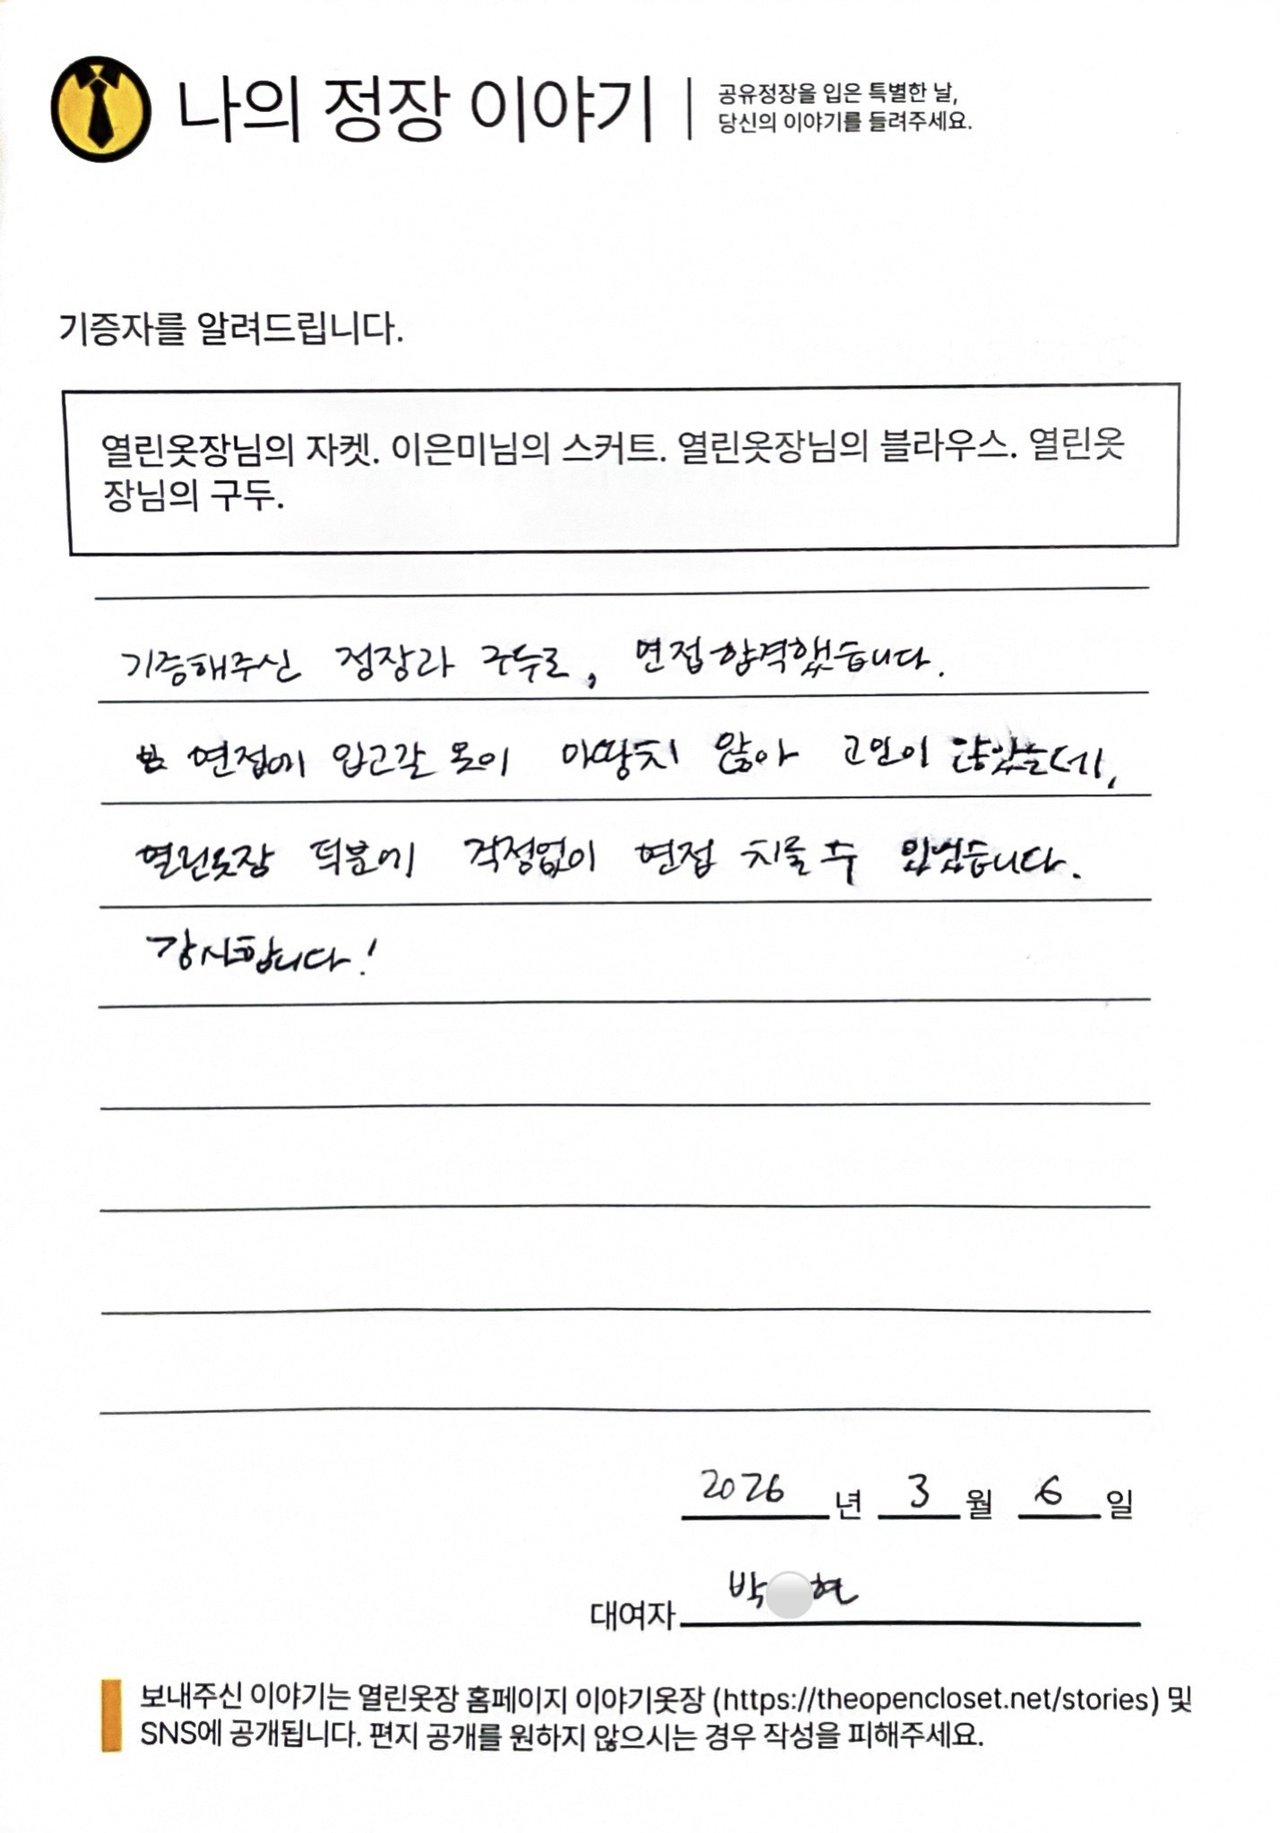 나의 정장 이야기
공유정장을 입은 특별한 날,
당신의 이야기를 들려주세요.
기증자를 알려드립니다.
열린옷장님의 자켓. 이은미님의 스커트. 열린옷장님의 블라우스. 열린옷
장님의 구두.
기증해주신 정장과 구두로, 면접 합격했습니다.
면접에 입고갈 옷이 마땅치 않아 고민이 많았는데,
열린옷장 덕분에 걱정없이 면접 치를 수 있었습니다.
감사합니다!
2026 년 3 월 6 일
대여자 박 현
보내주신 이야기는 열린옷장 홈페이지 이야기옷장 (https://theopencloset.net/stories) 및
SNS에 공개됩니다. 편지 공개를 원하지 않으시는 경우 작성을 피해주세요.